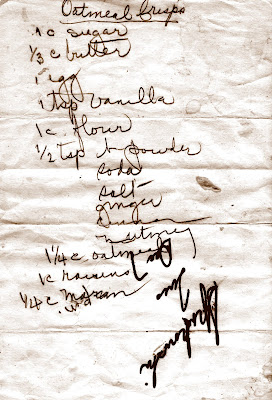 Oatmeal Crisps
1 c sugar
1/3 c butter
1 egg
1 tsp vanilla
1 c. flour
1/2 tsp b powder
soda
salt
ginger
nutmeg
1 1/4 c oatmeal
1 c raisins
1/4 c